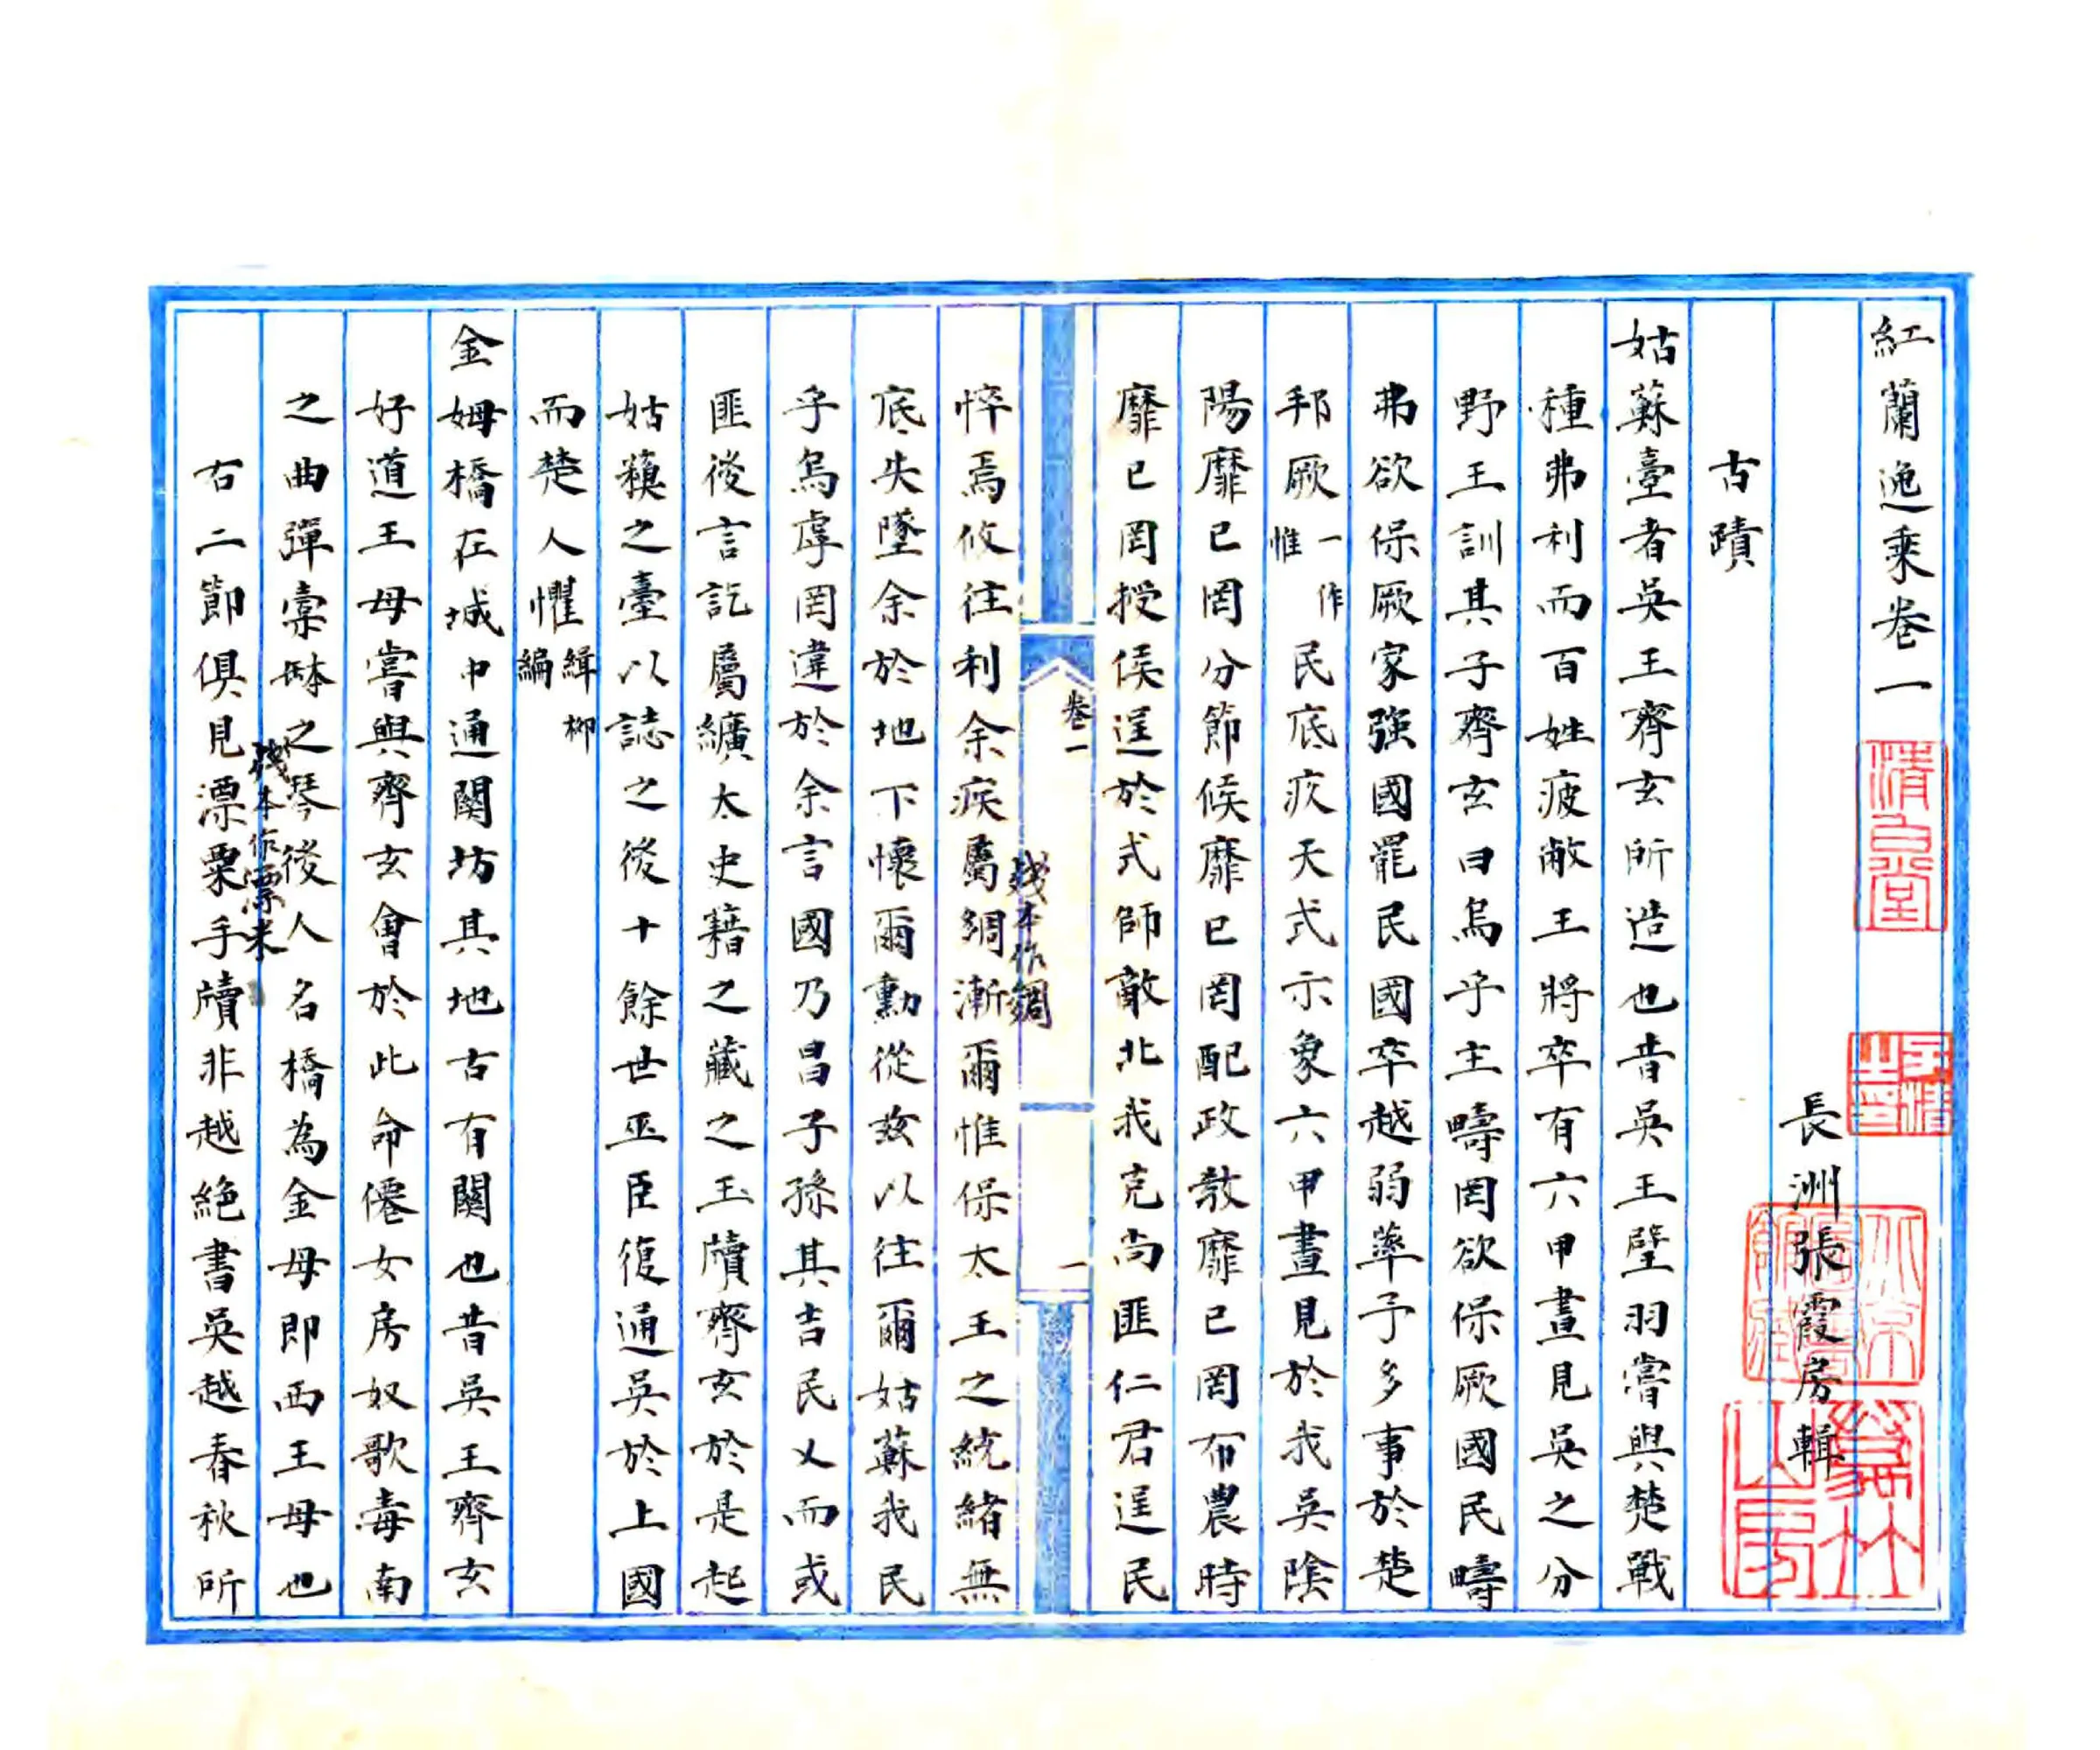 紅蘭逸乘卷一
長洲張霞房輯
古蹟
姑蘇臺者吳王齊玄所造也昔吳王壁羽嘗與楚戰
種弗利而百姓疲敝王將卒有六甲晝見吳之分
野王訓其子齊玄曰烏乎主疇罔欲保厥國民疇
弗欲保厥家強國罷民國卒越弱率予多事於楚
邦厥一作惟民底疚天式示象六甲晝見於我吳陰
陽靡已罔分節候靡已罔配政教靡已罔布農時
靡已罔授侯逞於式師敵北我克尚匪仁君逞民
卷一
一
悴焉攸往利余疾屬綢漸爾惟保太王之統緒無
殘本作錭
底失墜余於地下懷爾勳從茲以往爾姑蘇我民
乎烏虖罔違於余言國乃昌子孫其吉民乂而或
匪後言訖屬纊太史籍之藏之玉牘齊玄於是起
姑䉷之臺以誌之後十餘世巫臣復通吳於上國
而楚人懼緝柳編
金姆橋在城中通關坊其地古有關也昔吳王齊玄
好道王母嘗與齊玄會於此命僊女房奴歌毒南
之曲彈霥缽之琴後人名橋為金母即西王母也
殘本作漂米
右二節俱見漂粟手牘非越絕書吳越春秋所
清白堂